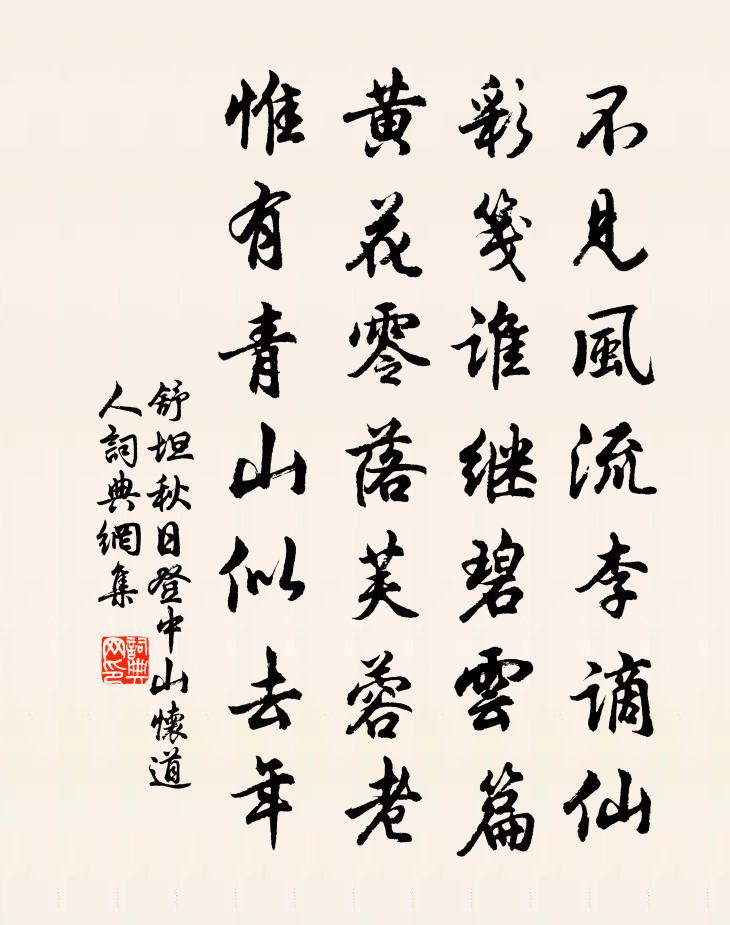 不見風流李謫仙
彩箋誰継碧雲篇
黄花零落芙蓉老
惟有青山似去年
舒坦秋日登中山懷道
人詞典網集
詞典网印